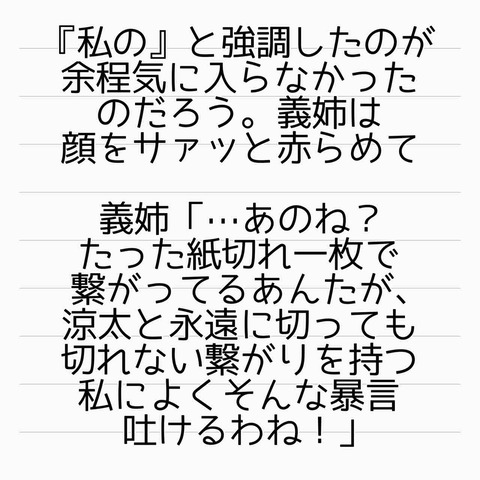 『私の』と強調したのが
余程気に入らなかった
のだろう。義姉は
顔をサァッと赤らめて
義姉「…あのね？
たった紙切れ一枚で
繋がってるあんたが、
涼太と永遠に切っても
切れない繋がりを持つ
私によくそんな暴言
吐けるわね！」